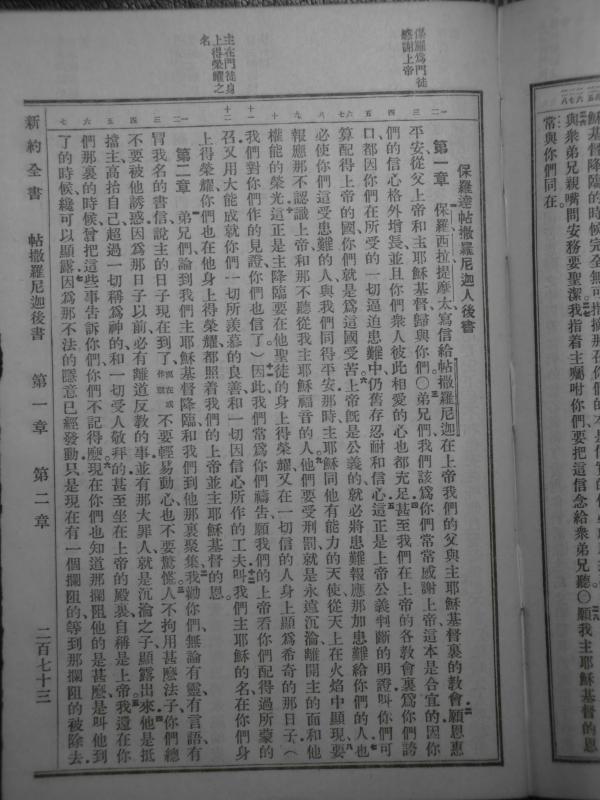 與衆弟兄親嘴問安務要聖潔我指着主囑咐你們要把這信念給衆弟兄聽〇願我主耶穌基督的恩
常與你們同在。
保羅爲門徒
感謝上帝
主在門徒身
上得榮耀之
名
保羅達帖撒羅尼迦人後書
第一章 保羅西拉提摩太寫信給帖撒羅尼迦在上帝我們的父與主耶穌基督裏的教會願恩惠
平安從父上帝和主耶穌基督歸與你們〇弟兄們我們該爲你們常常感謝上帝這本是合宜的因你
們的信心格外增長並且你們衆人彼此相愛的心也都充足甚至我們在上帝的各教會裏爲你們誇
口都因你們在所受的一切逼迫患難中仍舊存忍耐和信心這正是上帝公義判斷的明證叫你們可
算配得上帝的國你們就是爲這國受苦上帝旣是公義的就必將患難報應那加患難給你們的人也
必使你們這受患難的人與我們同得平安那時主耶穌同他有能力的天使從天上在火焰中顯現要
報應那不認識上帝和那不聽從我主耶穌福音的人他們要受刑罰就是永遠沉淪離開主的面和他
權能的榮光這正是主降臨要在他聖徒的身上得榮耀又在一切信的人身上顯爲希奇的那日子（
我們對你們作的見證你們也信了）因此我們常爲你們禱告願我們的上帝看你們配得過所蒙的
召又用大能成就你們一切所羨慕的良善和一切因信心所作的工夫叫我們主耶穌的名在你們身
上得榮耀你們也在他身上得榮耀都照着我們的上帝並主耶穌基督的恩。
第二章 弟兄們論到我們主耶穌基督降臨和我們到他那裏聚集我勸你們無論有靈有言語有
冒我名的書信說主的日子現在到了現在或作就不要輕易動心也不要驚慌人不拘用甚麼法子你們總
不要被他誘惑因爲那日子以前必有離道反敎的事並有那大罪人就是沉淪之子顯露出來他是抵
擋主高抬自己超過一切稱爲神的和一切受人敬拜的甚至坐在上帝的殿裏自稱是上帝我還在你
們那裏的時候曾把這些事告訴你們你們不記得麼現在你們也知道那攔阻他的是甚麼是叫他到
了的時候纔可以顯露因爲那不法的隱意已經發動只是現在有一個攔阻的等到那攔阻的被除去
新約全書 帖撒羅尼迦後書 第一章 第二章 二百七十三